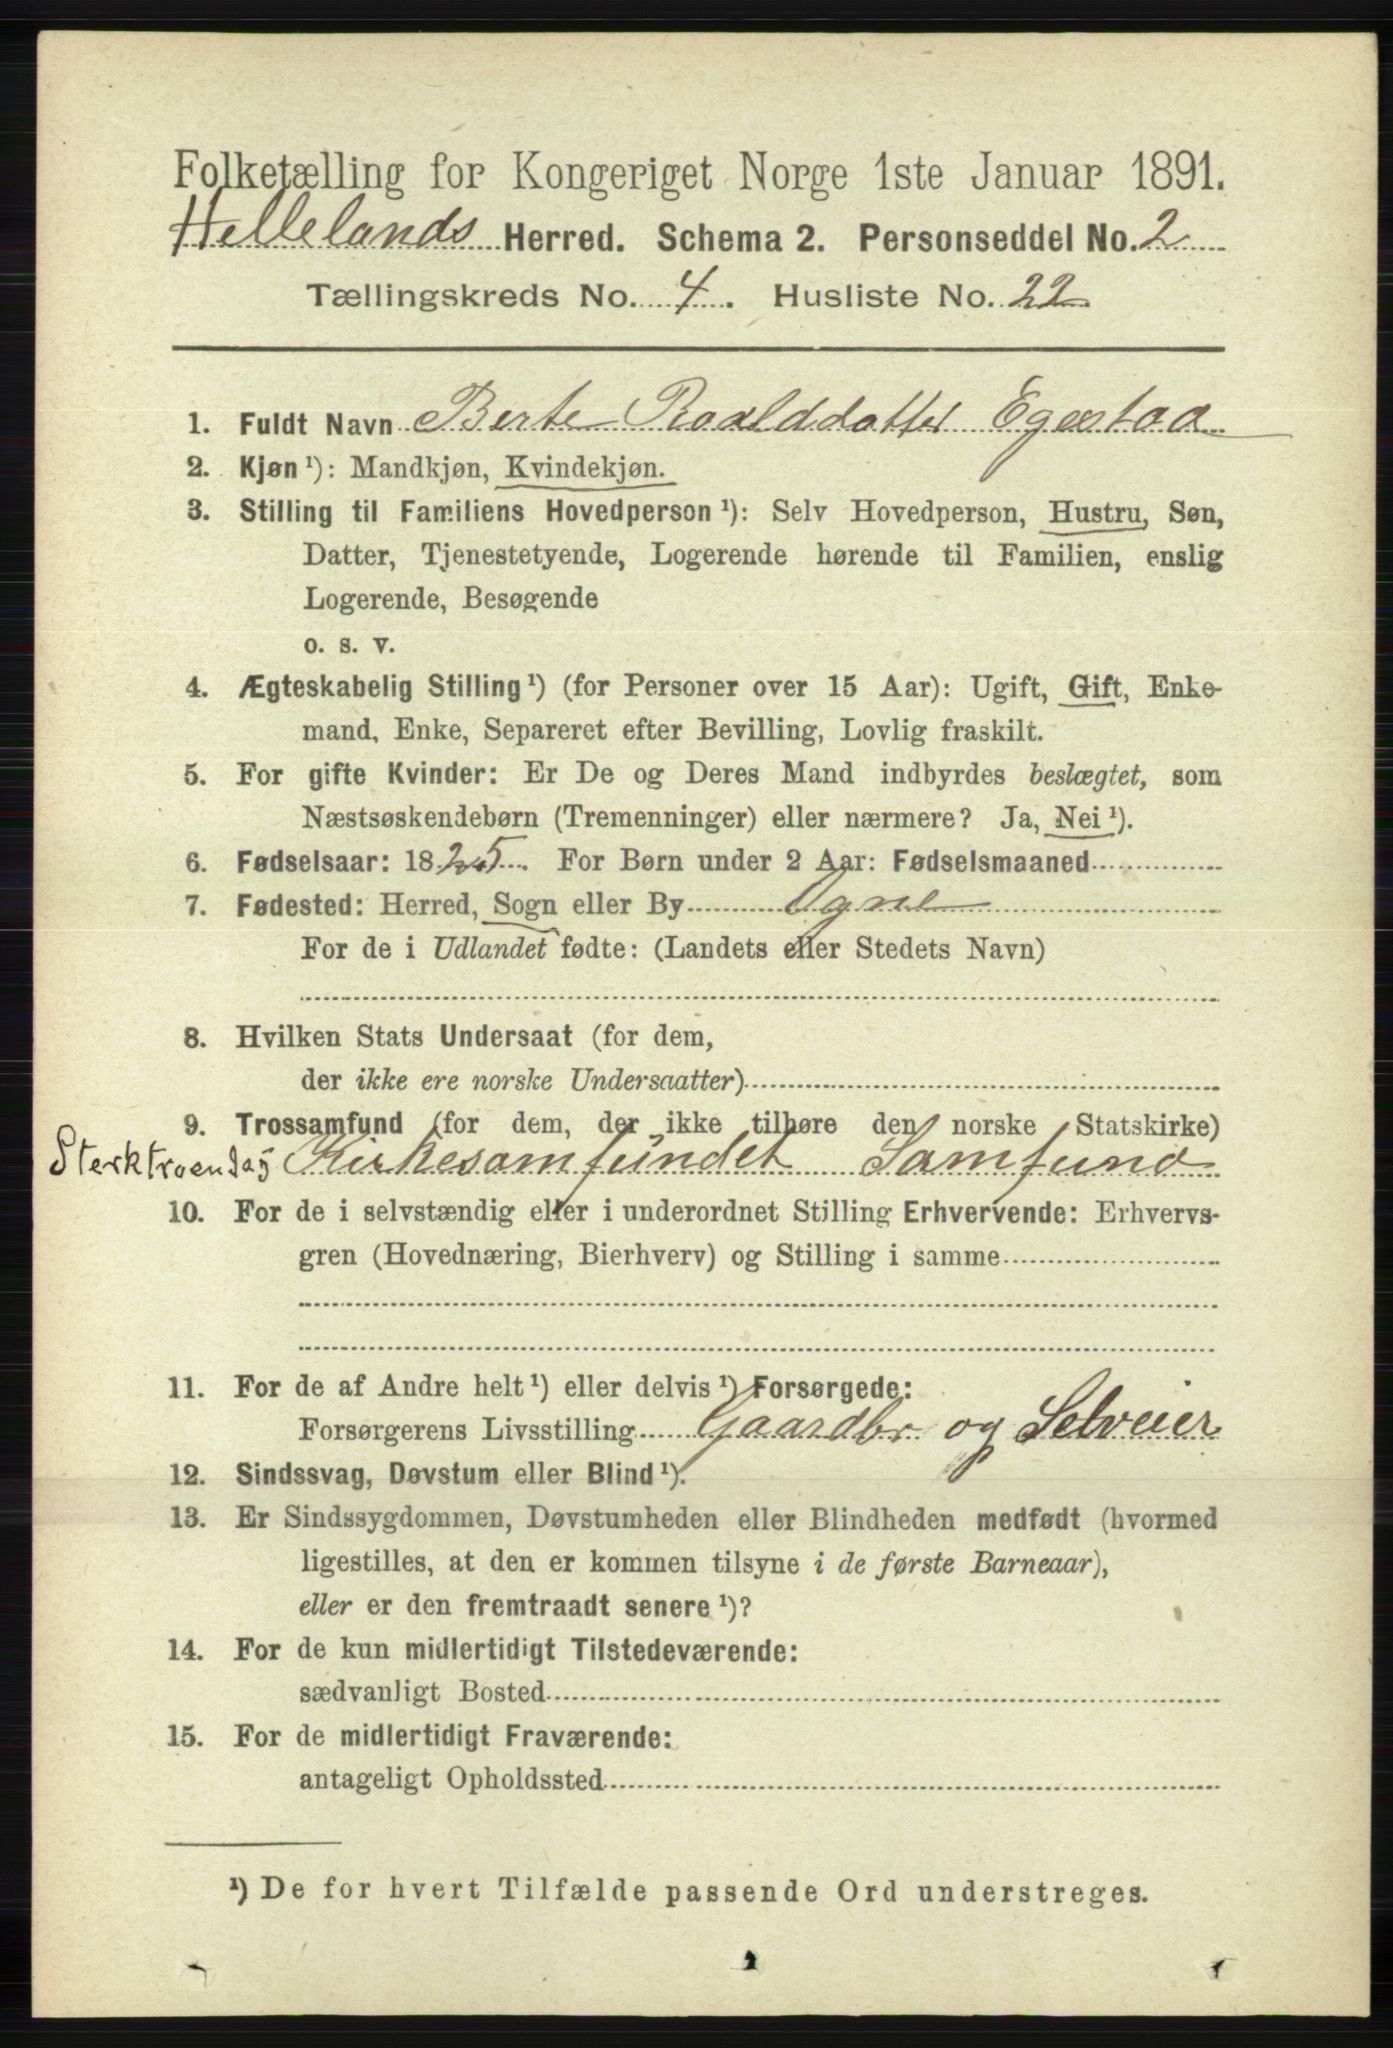 Folketælling for Kongeriget Norge 1ste Januar 1891.
Hellelands Herred. Schema 2. Personseddel No. 2
Tællingskreds No. 4. Husliste No. 22
1. Fuldt Navn Berte Roalddatter Egestad
2. Kjøn ¹): Mandkjøn, Kvindekjøn.
3. Stilling til Familiens Hovedperson ¹): Selv Hovedperson, Hustru, Søn,
Datter, Tjenestetyende, Logerende hørende til Familien, enslig
Logerende, Besøgende
o. s. v.
4. Ægteskabelig Stilling ¹) (for Personer over 15 Aar): Ugift, Gift, Enke-
mand, Enke, Separeret efter Bevilling, Lovlig fraskilt.
5. For gifte Kvinder: Er De og Deres Mand indbyrdes beslægtet, som
Næstsøskendebørn (Tremenninger) eller nærmere? Ja, Nei ¹).
6. Fødselsaar: 1825. For Børn under 2 Aar: Fødselsmaaned
7. Fødested: Herred, Sogn eller By Ogne
For de i Udlandet fødte: (Landets eller Stedets Navn)
8. Hvilken Stats Undersaat (for dem,
der ikke ere norske Undersaatter)
9. Trossamfund (for dem, der ikke tilhøre den norske Statskirke)
Sterktroendes Kirkesamfundet Samfund
10. For de i selvstændig eller i underordnet Stilling Erhvervende: Erhvervs-
gren (Hovednæring, Bierhverv) og Stilling i samme
11. For de af Andre helt ¹) eller delvis ¹) Forsørgede:
Forsørgerens Livsstilling Gaardbr og Selveier
12. Sindssvag, Døvstum eller Blind ¹).
13. Er Sindssygdommen, Døvstumheden eller Blindheden medfødt (hvormed
ligestilles, at den er kommen tilsyne i de første Barneaar),
eller er den fremtraadt senere ¹)?
14. For de kun midlertidigt Tilstedeværende:
sædvanligt Bosted
15. For de midlertidigt Fraværende:
antageligt Opholdssted
¹) De for hvert Tilfælde passende Ord understreges.